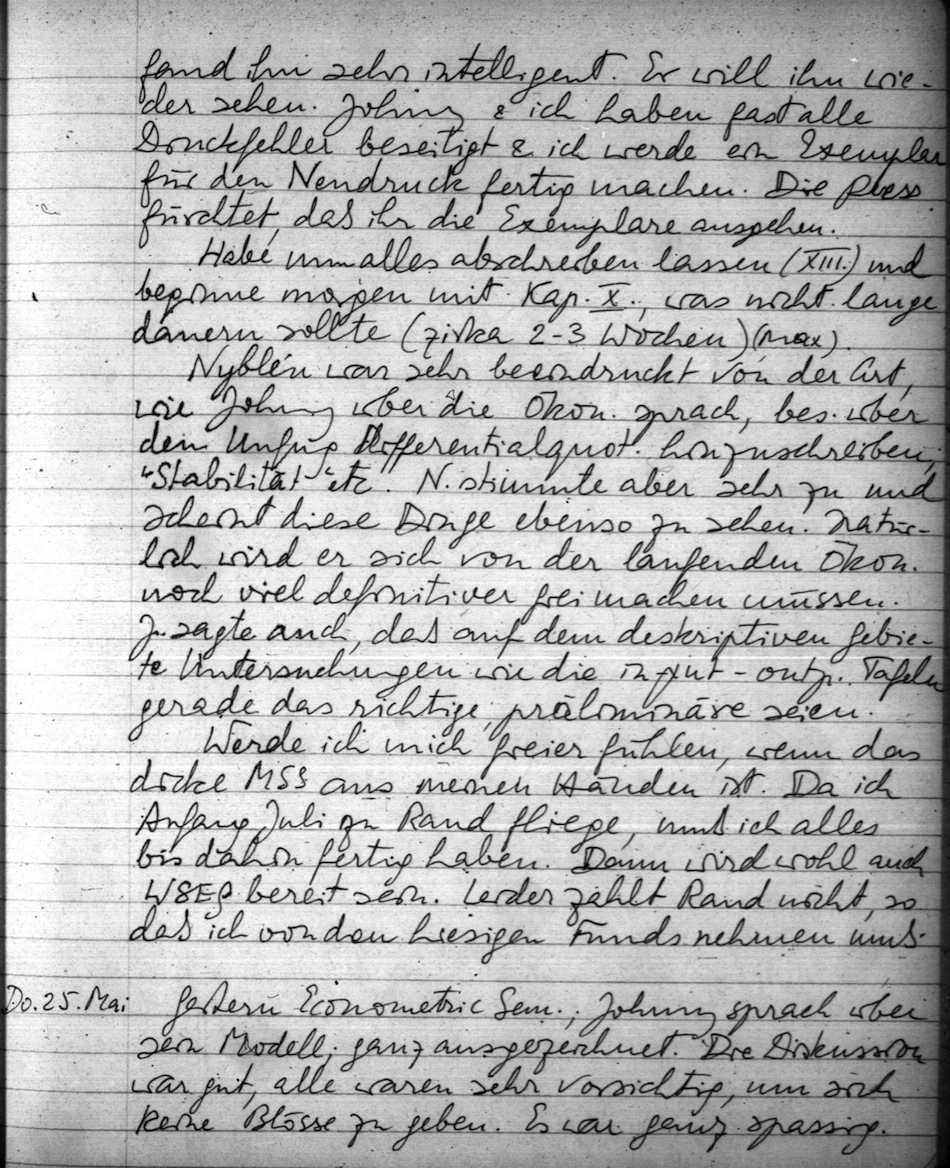 fand ihn sehr intelligent. Er will ihn wie-
der sehen. Johnny & ich haben fast alle
Druckfehler beseitigt & ich werde ein Exemplar
für den Neudruck fertig machen. Die Press
fürchtet, daß ihr die Exemplare ausgehen.
Habe nun alles abschreiben lassen (XIII.) und
beginne morgen mit Kap. X., was nicht lange
dauern sollte (zirka 2-3 Wochen) (max).
Nyblén war sehr beeindruckt von der Art,
wie Johnny über die Ökon. sprach, bes. über
den Unfug Differentialquot. hinzuschreiben,
"Stabilität" etc. N. stimmte aber sehr zu und
scheint diese Dinge ebenso zu sehen. Natür-
lich wird er sich von der laufenden Ökon.
noch viel definitiver frei machen müssen.
J. sagte auch, daß auf dem deskriptiven Gebie-
te Untersuchungen wie die input-outp. Tafeln
gerade das richtige, präliminäre seien.
Werde ich mich freier fühlen, wenn das
dicke MSS aus meinen Händen ist. Da ich
Anfang Juli zu Rand fliege, muß ich alles
bis dahin fertig haben. Dann wird wohl auch
bereit sein. Leider zahlt Rand nicht, so
daß ich von den hiesigen Funds nehmen muß.
Do. 25. Mai Gestern Econometric Sem., Johnny sprach über
sein Modell; ganz ausgezeichnet. Die Diskussion
war gut, alle waren sehr vorsichtig, um sich
keine Blösse zu geben. Es war ganz spassig.